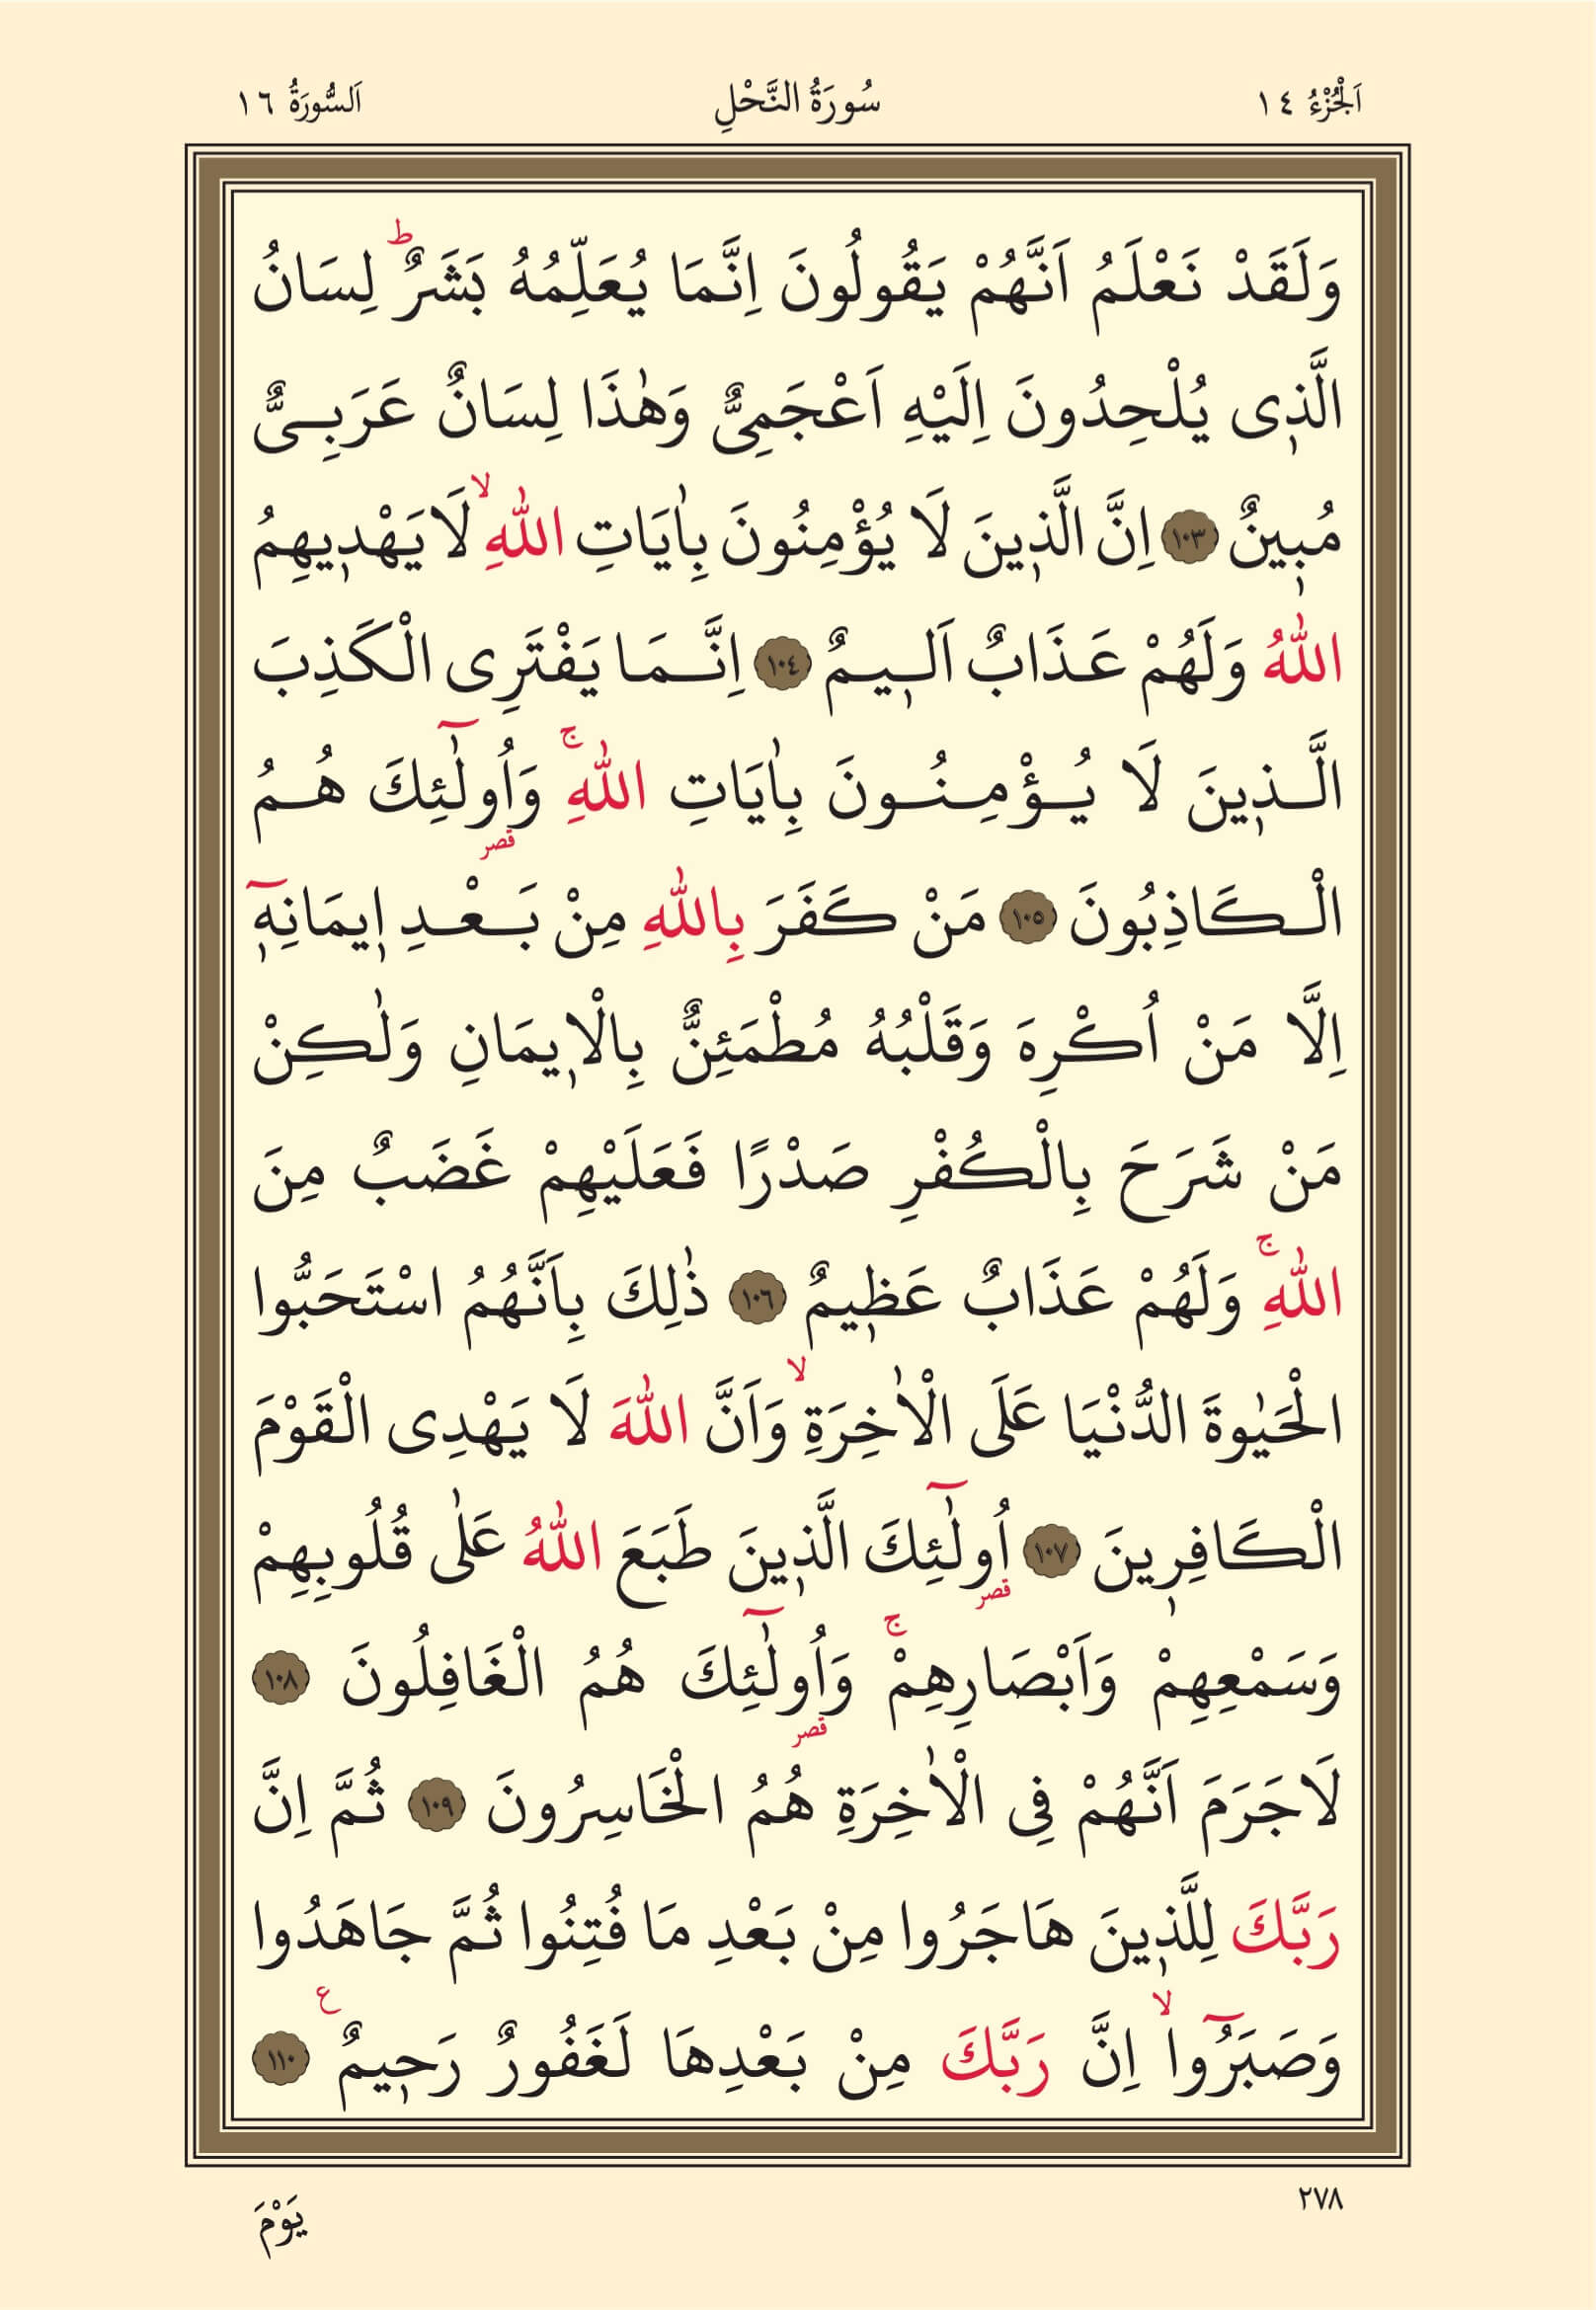 اَلْجُزْءُ ١٤
سُورَةُ النَّحْلِ
اَلسُّورَةُ ١٦
وَلَقَدْ نَعْلَمُ اَنَّهُمْ يَقُولُونَ اِنَّمَا يُعَلِّمُهُ بَشَرٌۜ لِسَانُ
الَّذ۪ى يُلْحِدُونَ اِلَيْهِ اَعْجَمِىٌّ وَهٰذَا لِسَانٌ عَرَبِىٌّ
مُب۪ينٌ ﴿١٠٣﴾ اِنَّ الَّذ۪ينَ لَا يُؤْمِنُونَ بِاٰيَاتِ اللّٰهِۙ لَا يَهْد۪يهِمُ
اللّٰهُ وَلَهُمْ عَذَابٌ اَل۪يمٌ ﴿١٠٤﴾ اِنَّمَا يَفْتَرِى الْكَذِبَ
الَّذ۪ينَ لَا يُؤْمِنُونَ بِاٰيَاتِ اللّٰهِۚ وَاُولٰٓئِكَ هُمُ
قصر
الْكَاذِبُونَ ﴿١٠٥﴾ مَنْ كَفَرَ بِاللّٰهِ مِنْ بَعْدِ ا۪يمَانِه۪ٓ
اِلَّا مَنْ اُكْرِهَ وَقَلْبُهُ مُطْمَئِنٌّ بِالْا۪يمَانِ وَلٰكِنْ
مَنْ شَرَحَ بِالْكُفْرِ صَدْرًا فَعَلَيْهِمْ غَضَبٌ مِنَ
اللّٰهِۚ وَلَهُمْ عَذَابٌ عَظ۪يمٌ ﴿١٠٦﴾ ذٰلِكَ بِاَنَّهُمُ اسْتَحَبُّوا
الْحَيٰوةَ الدُّنْيَا عَلَى الْاٰخِرَةِۙ وَاَنَّ اللّٰهَ لَا يَهْدِى الْقَوْمَ
الْكَافِر۪ينَ ﴿١٠٧﴾ اُولٰٓئِكَ الَّذ۪ينَ طَبَعَ اللّٰهُ عَلٰى قُلُوبِهِمْ
قصر
وَسَمْعِهِمْ وَاَبْصَارِهِمْۚ وَاُولٰٓئِكَ هُمُ الْغَافِلُونَ ﴿١٠٨﴾
قصر
لَا جَرَمَ اَنَّهُمْ فِى الْاٰخِرَةِ هُمُ الْخَاسِرُونَ ﴿١٠٩﴾ ثُمَّ اِنَّ
رَبَّكَ لِلَّذ۪ينَ هَاجَرُوا مِنْ بَعْدِ مَا فُتِنُوا ثُمَّ جَاهَدُوا
وَصَبَرُٓواۙ اِنَّ رَبَّكَ مِنْ بَعْدِهَا لَغَفُورٌ رَح۪يمٌ ع ﴿١١٠﴾
٢٧٨
يَوْمَ